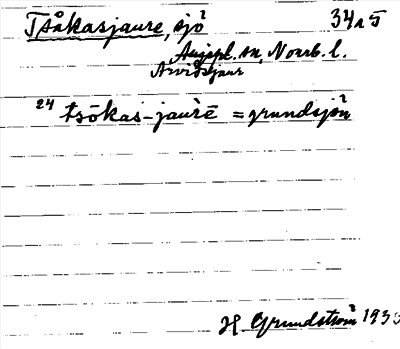 Tsåkasjaure, sjö 34 n 5
Arjepl. sn, Norrb. l.
Arvidsjaur
24 tsōkas-jaùrē = grundsjön
H Grundström 193